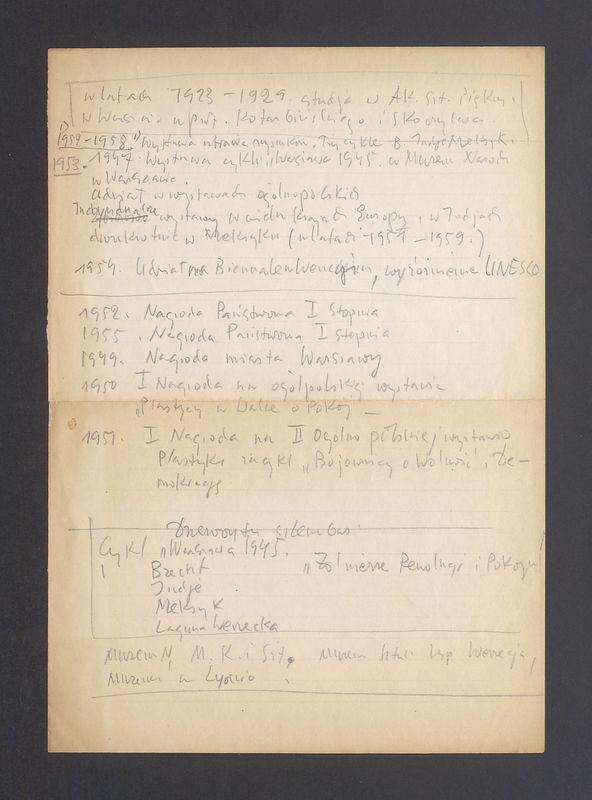 w latach 1923 – 1929 studja w Ak. Szt. Pięknych.
w Warszawie u prof. Kotarbińskiego i Skoczylasa.
1952–1958. Wystawa rysunków. Trzy cykle Indje Meksyk.
1953. 1947. Wystawa cyklu "Warszawa 1945. w Muzeum Narod.
w Warszawie.
Udział w wystawach ogólnopolskich
Indywidualne wystawy w wielu krajach Europy, w Indjach
dwukrotnie w Meksyku (w latach 1954 – 1959.)
1954. Udział na Biennale w Wenecji, wyróżnienie UNESCO
1952. Nagroda Państwowa I Stopnia
1955. Nagroda Państwowa I Stopnia
1949. Nagroda miasta Warszawy
1950 I Nagroda na ogólpolskiej wystawie
"Plastycy w walce o Pokój" –
1951. I Nagroda na II Ogólno polskiej wystawie
Plastyki za cykl "Bojownicy o Wolność i De-
mokrację
Drzeworyty
Cykl "Warszawa 1945.
Brecht "Żołnierze Rewolucji i Pokoju"
Indje
Meksyk
Laguna Wenecka
Muzeum N, M. K. i Szt. Muzeum Sztuki Wsp Wenecja,
Muzeum w